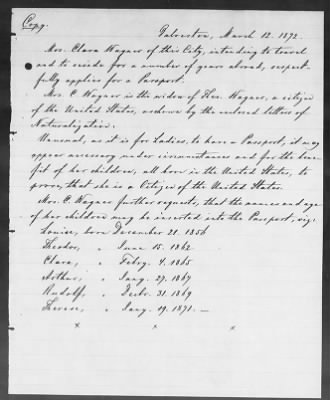 Copy.
Galveston, March 12. 1872.
Mrs. Clara Wagner of this City, intending to travel
and to reside for a number of years abroad, respect-
fully applies for a Passport.
Mrs. C. Wagner is the widow of Wagner, a citizen
of the United States, as shown by the enclosed letters of
Naturalization.
Unusual, as it is for Ladies, to have a Passport, it may
appear necessary under circumstances and for the bene-
fit of her children, all born in the United States, to
prove, that she is a Citizen of the United States.
Mrs. C. Wagner further requests, that the names and age
of her children may be inserted into the Passport, viz:
Louise, born December 21. 1856
Theodor, " June 15. 1862
Clara, " Febry. 4. 1865
Arthur, " Jany. 27. 1867
Rudolf, " Decbr. 31. 1869
Therese, " Jany. 19. 1871. —
x x x